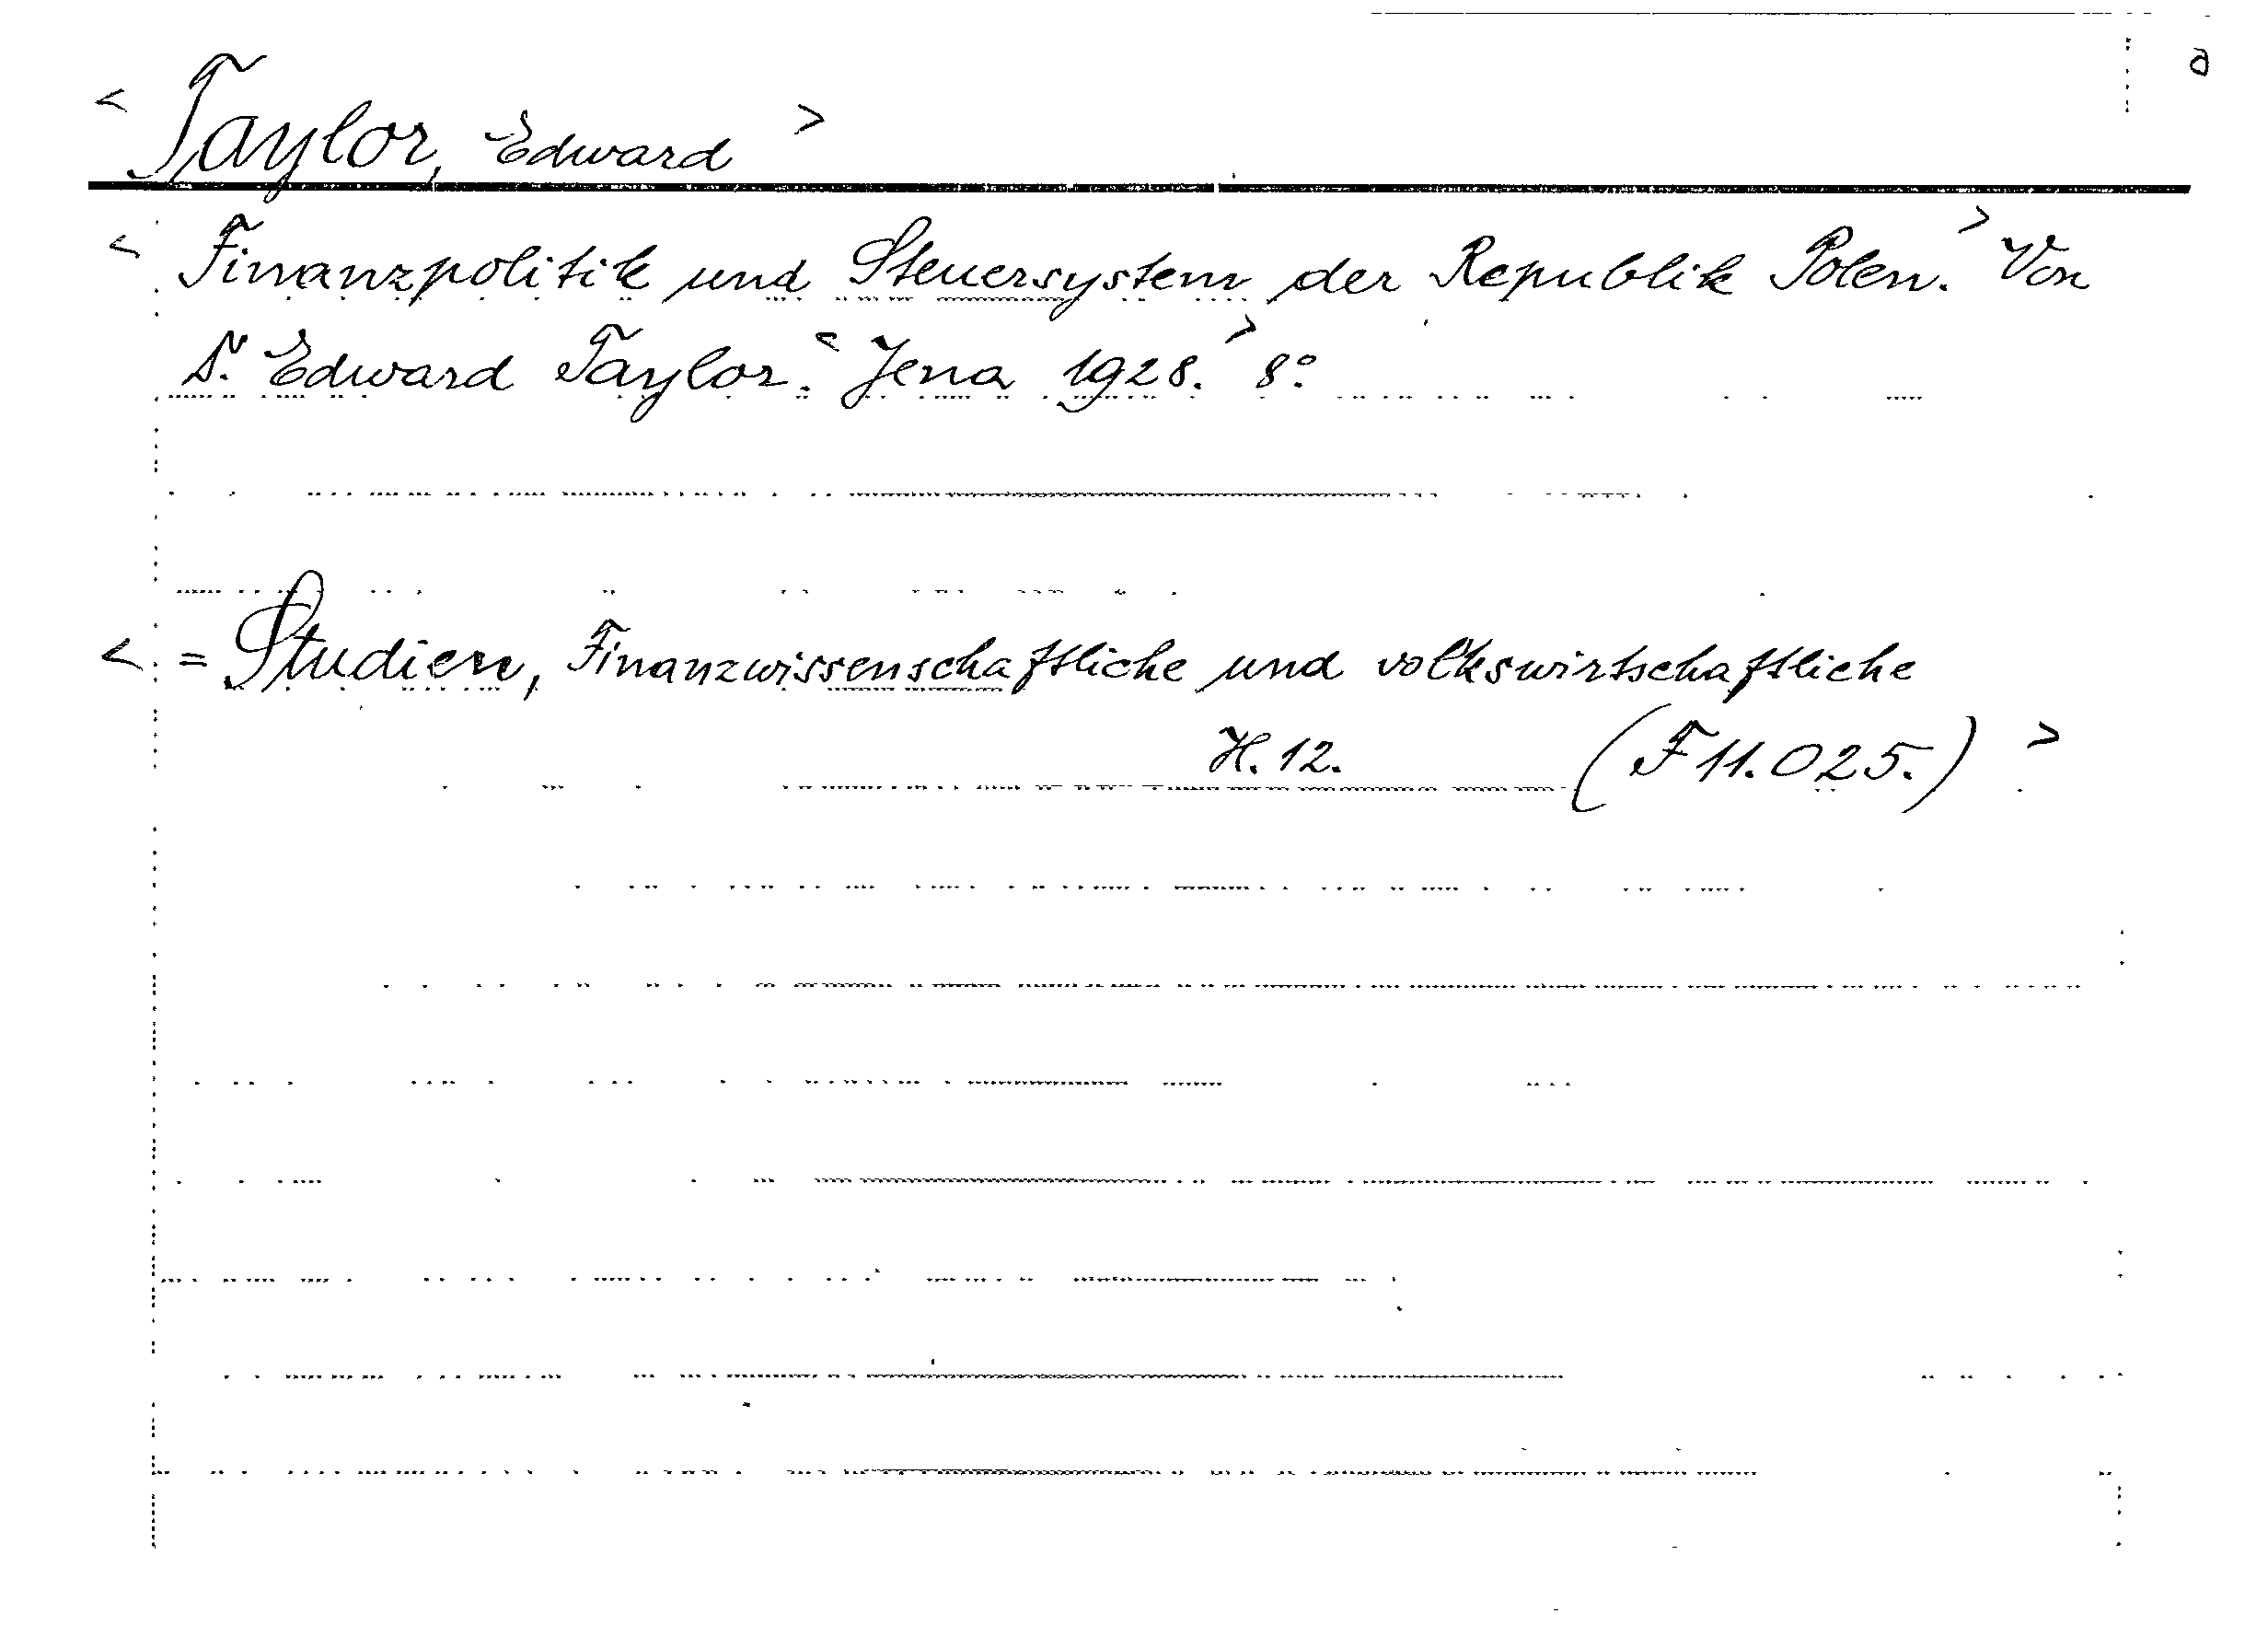 a
< Taylor, Edward >
< Finanzpolitik und Steuersystem der Republik Polen. > Von
Dr. Edward Taylor. < Jena 1928. > 8°.
< = Studien, Finanzwissenschaftliche und volkswirtschaftliche
H. 12. (F 11.025.) >